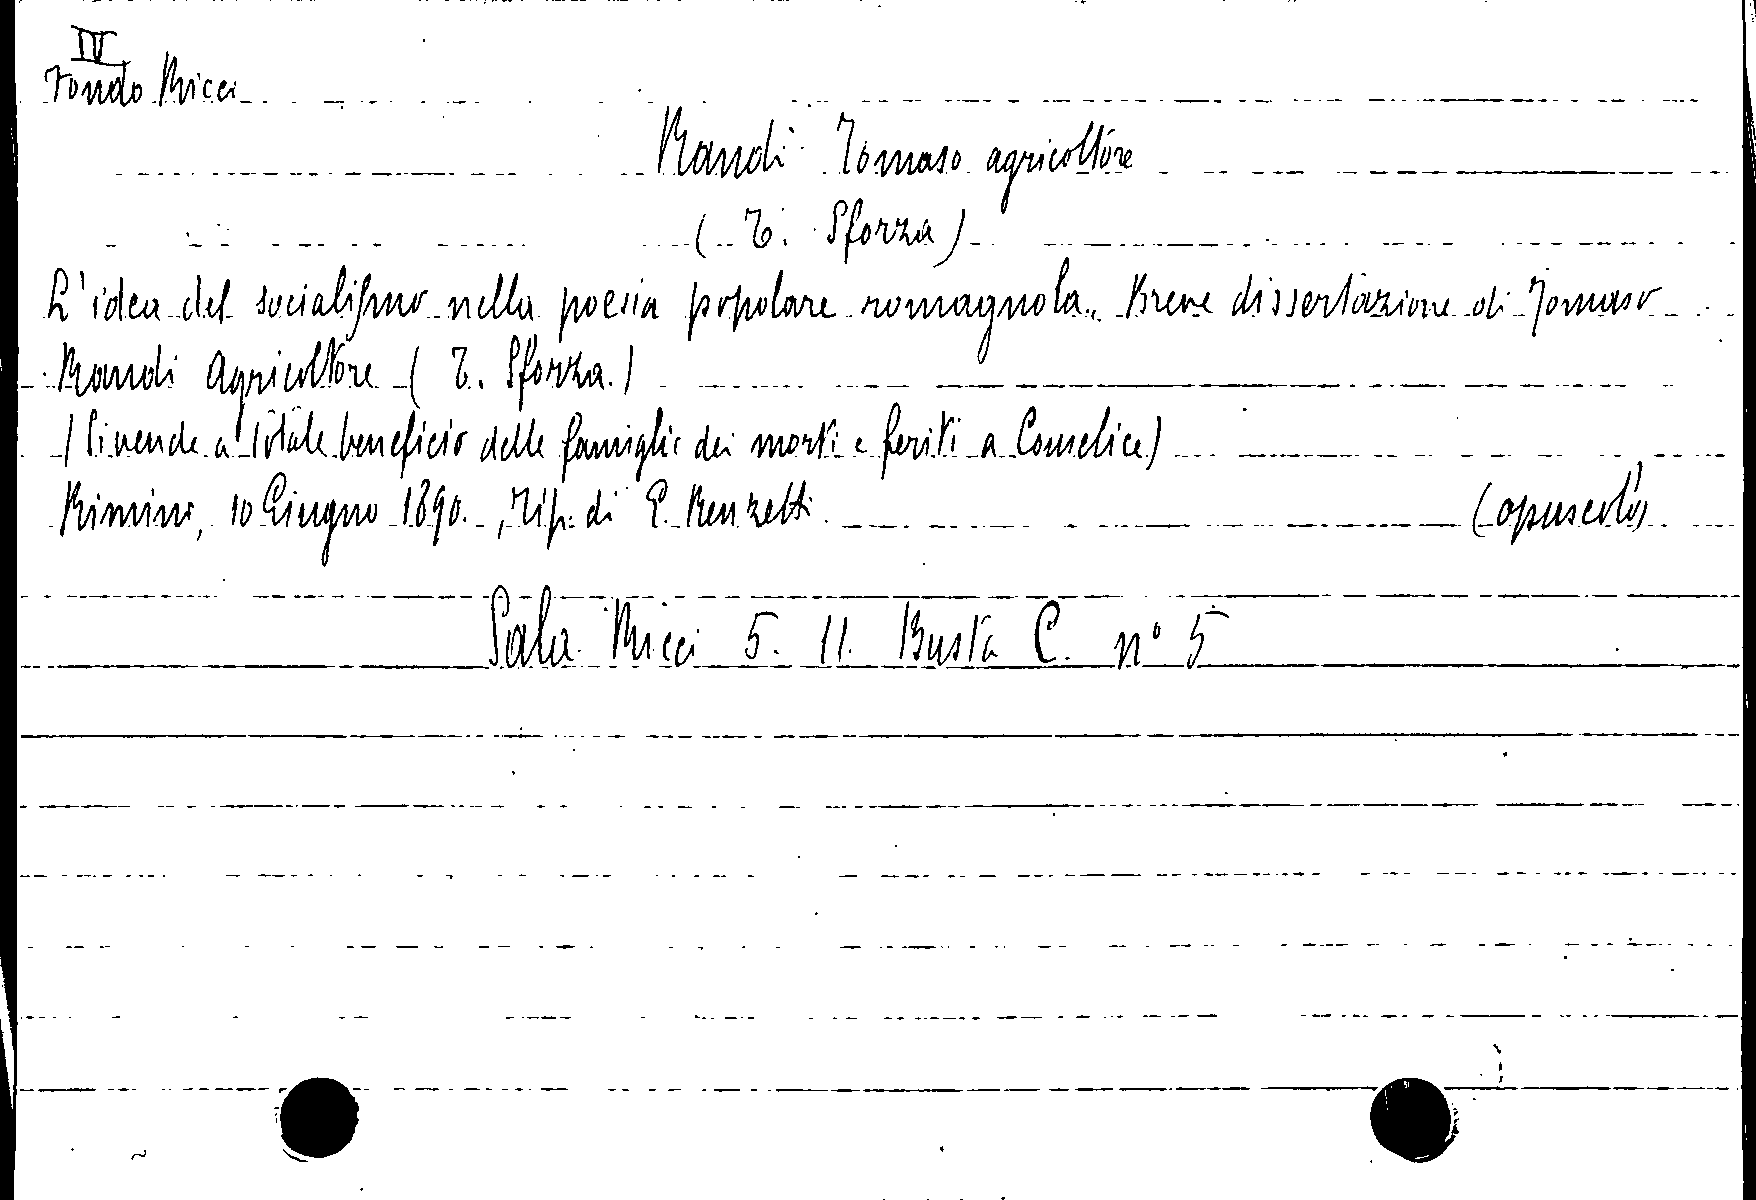 IV
Fondo Ricci
Randi Tomaso agricoltore
( T. Sforza )
L'idea del socialismo nella poesia popolare romagnola. Breve dissertazione di Tomaso
Randi Agricoltore ( T. Sforza. )
( Si vende a totale beneficio delle famiglie dei morti e feriti a Conselice )
Rimini, 10 Giugno 1890. , Tip. di E. Renzetti. (opuscolo)
Sala Ricci 5. 11. Busta C. n° 5